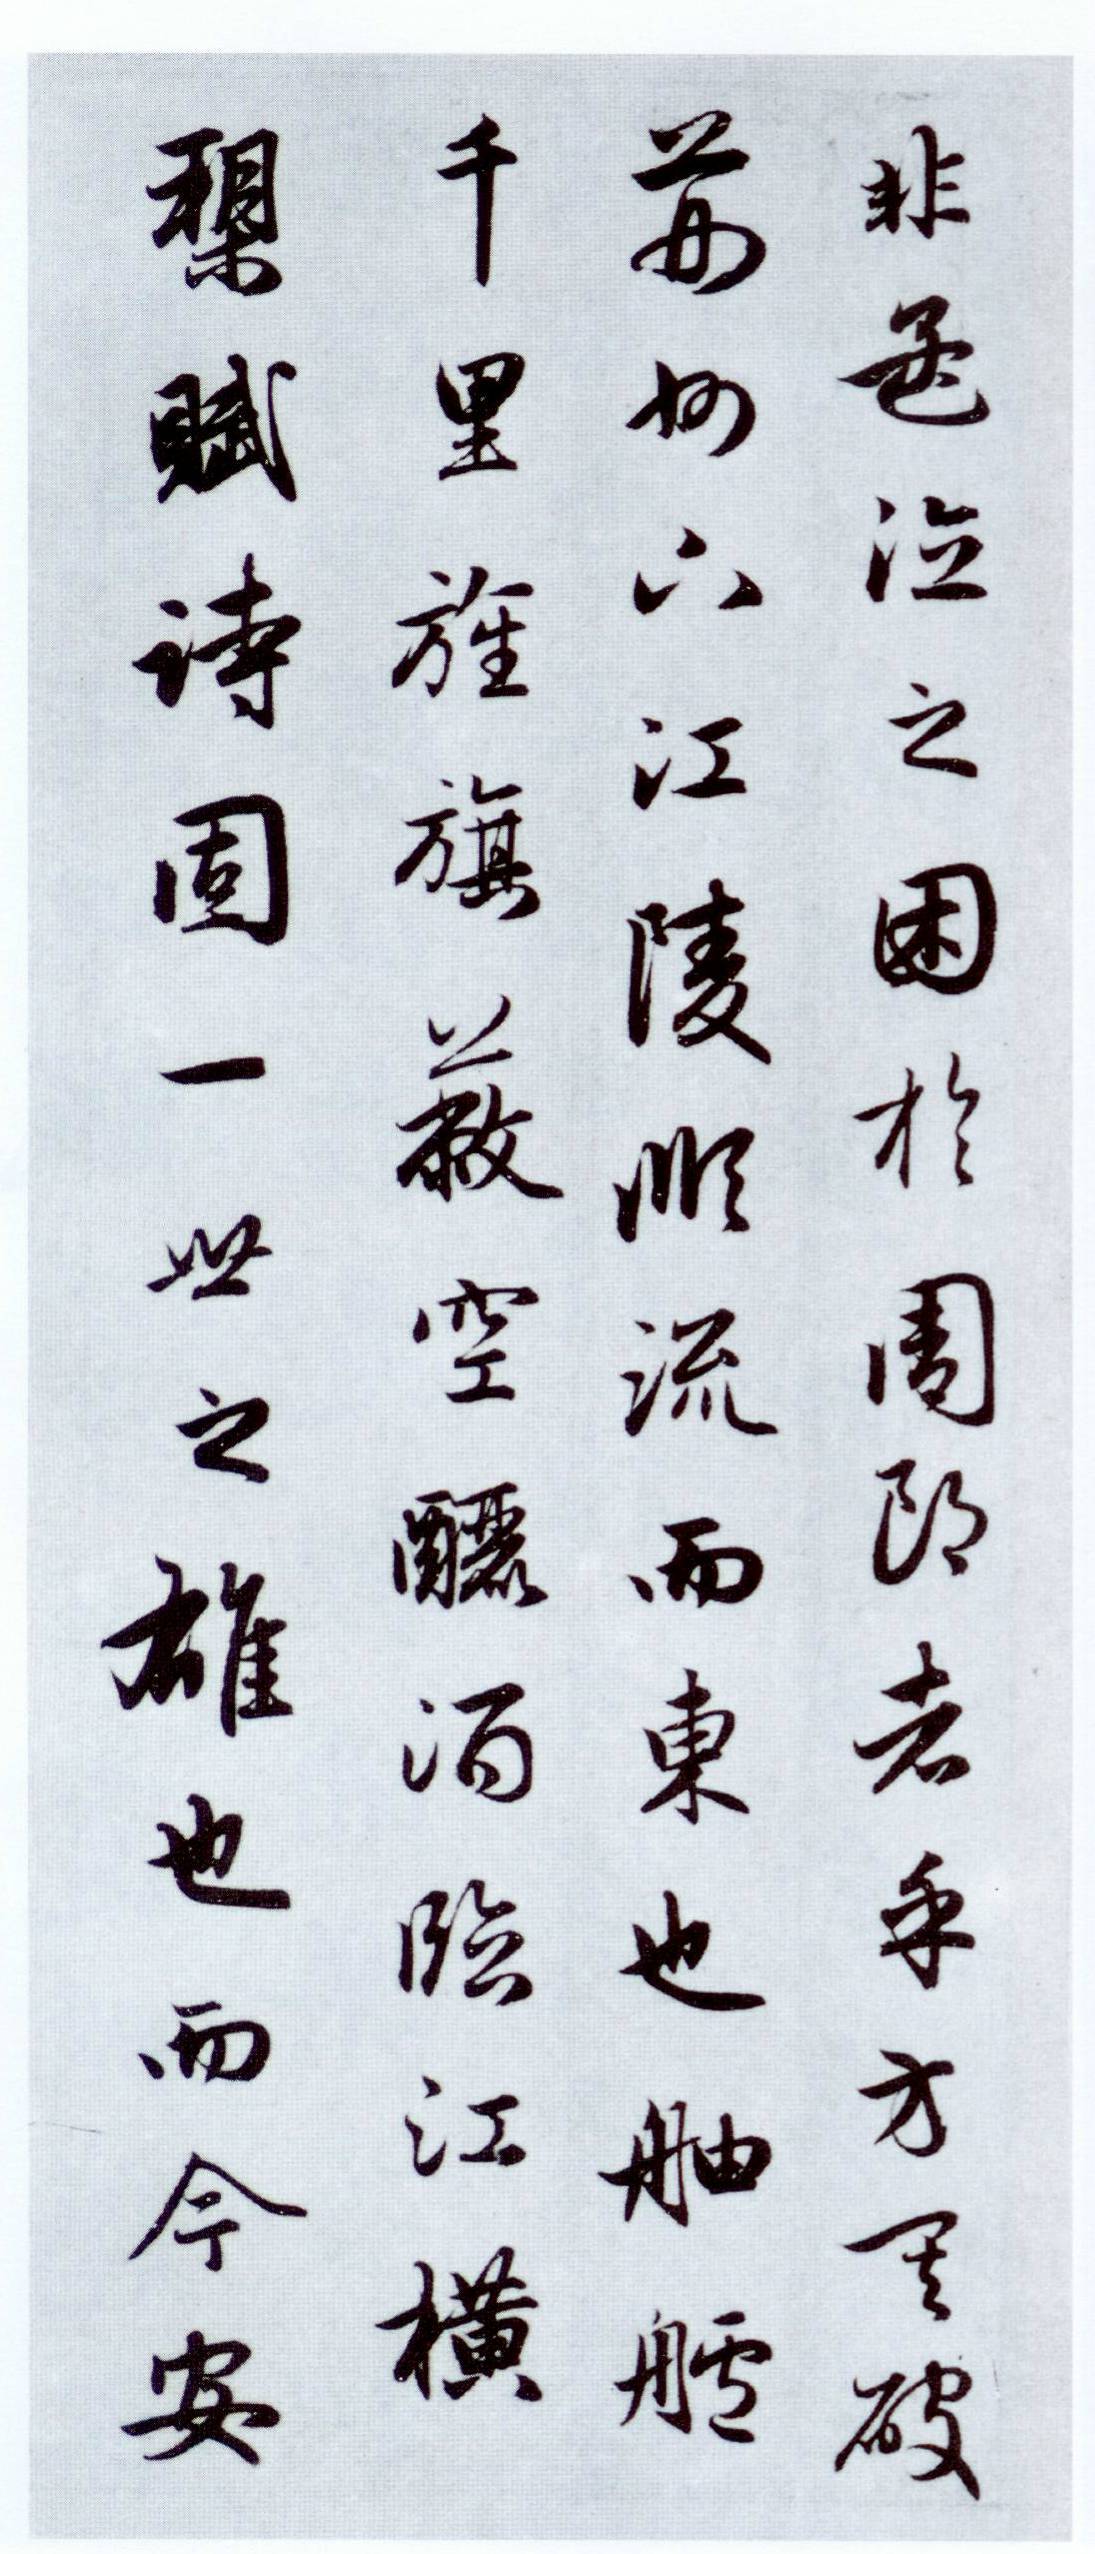 非孟德之困於周郎者乎方其破
荊州下江陵順流而東也舳艫
千里旌旗蔽空釃酒臨江橫
槊賦詩固一世之雄也而今安